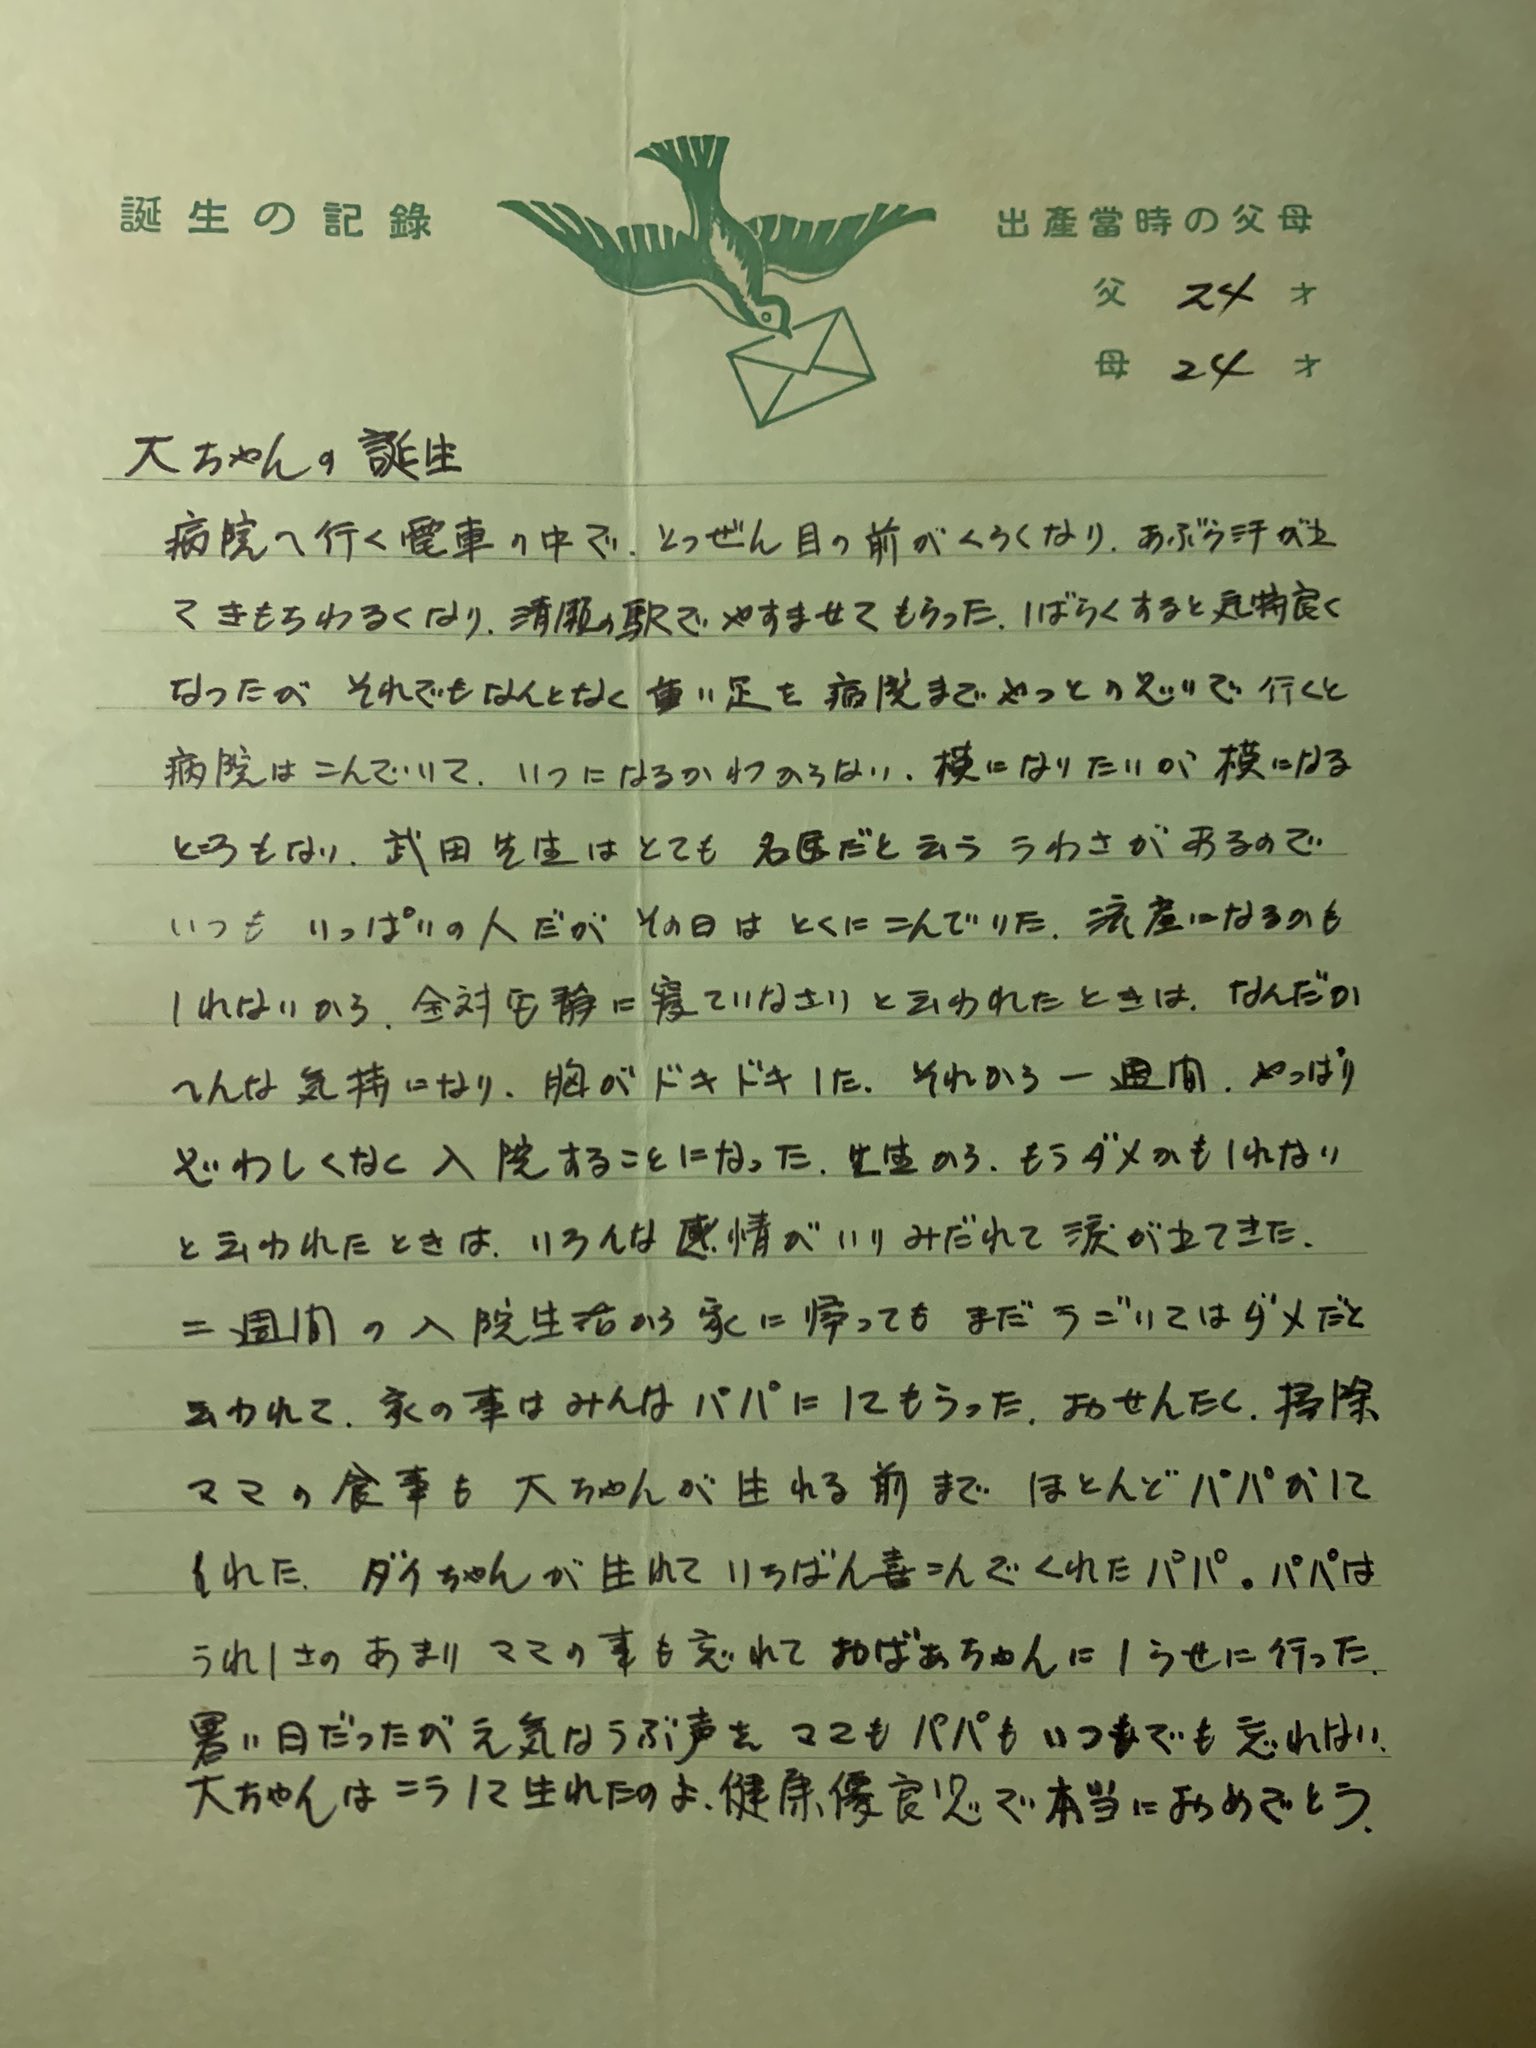 誕生の記錄
出產當時の父母
父 24 才
母 24 才
大ちゃんの誕生
病院へ行く電車の中で、とつぜん目の前がくらくなり、あぶら汗が出
てきもちわるくなり、清瀬の駅でやすませてもらった、しばらくすると気持良く
なったが それでもなんとなく重い足を 病院までやっとの思いで行くと
病院はこんでいて、いつになるかわからない、横になりたいが 横になる
ところもない、武田先生はとても 名医だと云う うわさがあるので
いつも いっぱいの人だが その日は とくにこんでいた、流産になるかも
しれないから、全対安静に寝ていなさいと云われたときは、なんだか
へんな気持になり、胸がドキドキした、それから一週間、やっぱり
思わしくなく 入院することになった、先生から、もうダメかもしれない
と云われたときは、いろんな感情がいりみだれて 涙が出てきた、
二週間の入院生活から家に帰っても まだうごいてはダメだと
云われて、家の事はみんなパパにしてもらった、おせんたく、掃除
ママの食事も 大ちゃんが生れる前まで ほとんどパパがして
くれた、ダイちゃんが生れて いちばん喜こんでくれたパパ。パパは
うれしさのあまり ママの事も忘れて おばあちゃんにしらせに行った、
暑い日だったが元気なうぶ声を ママもパパもいつまでも忘れない、
大ちゃんはこうして生れたのよ、健康優良児で本当におめでとう、